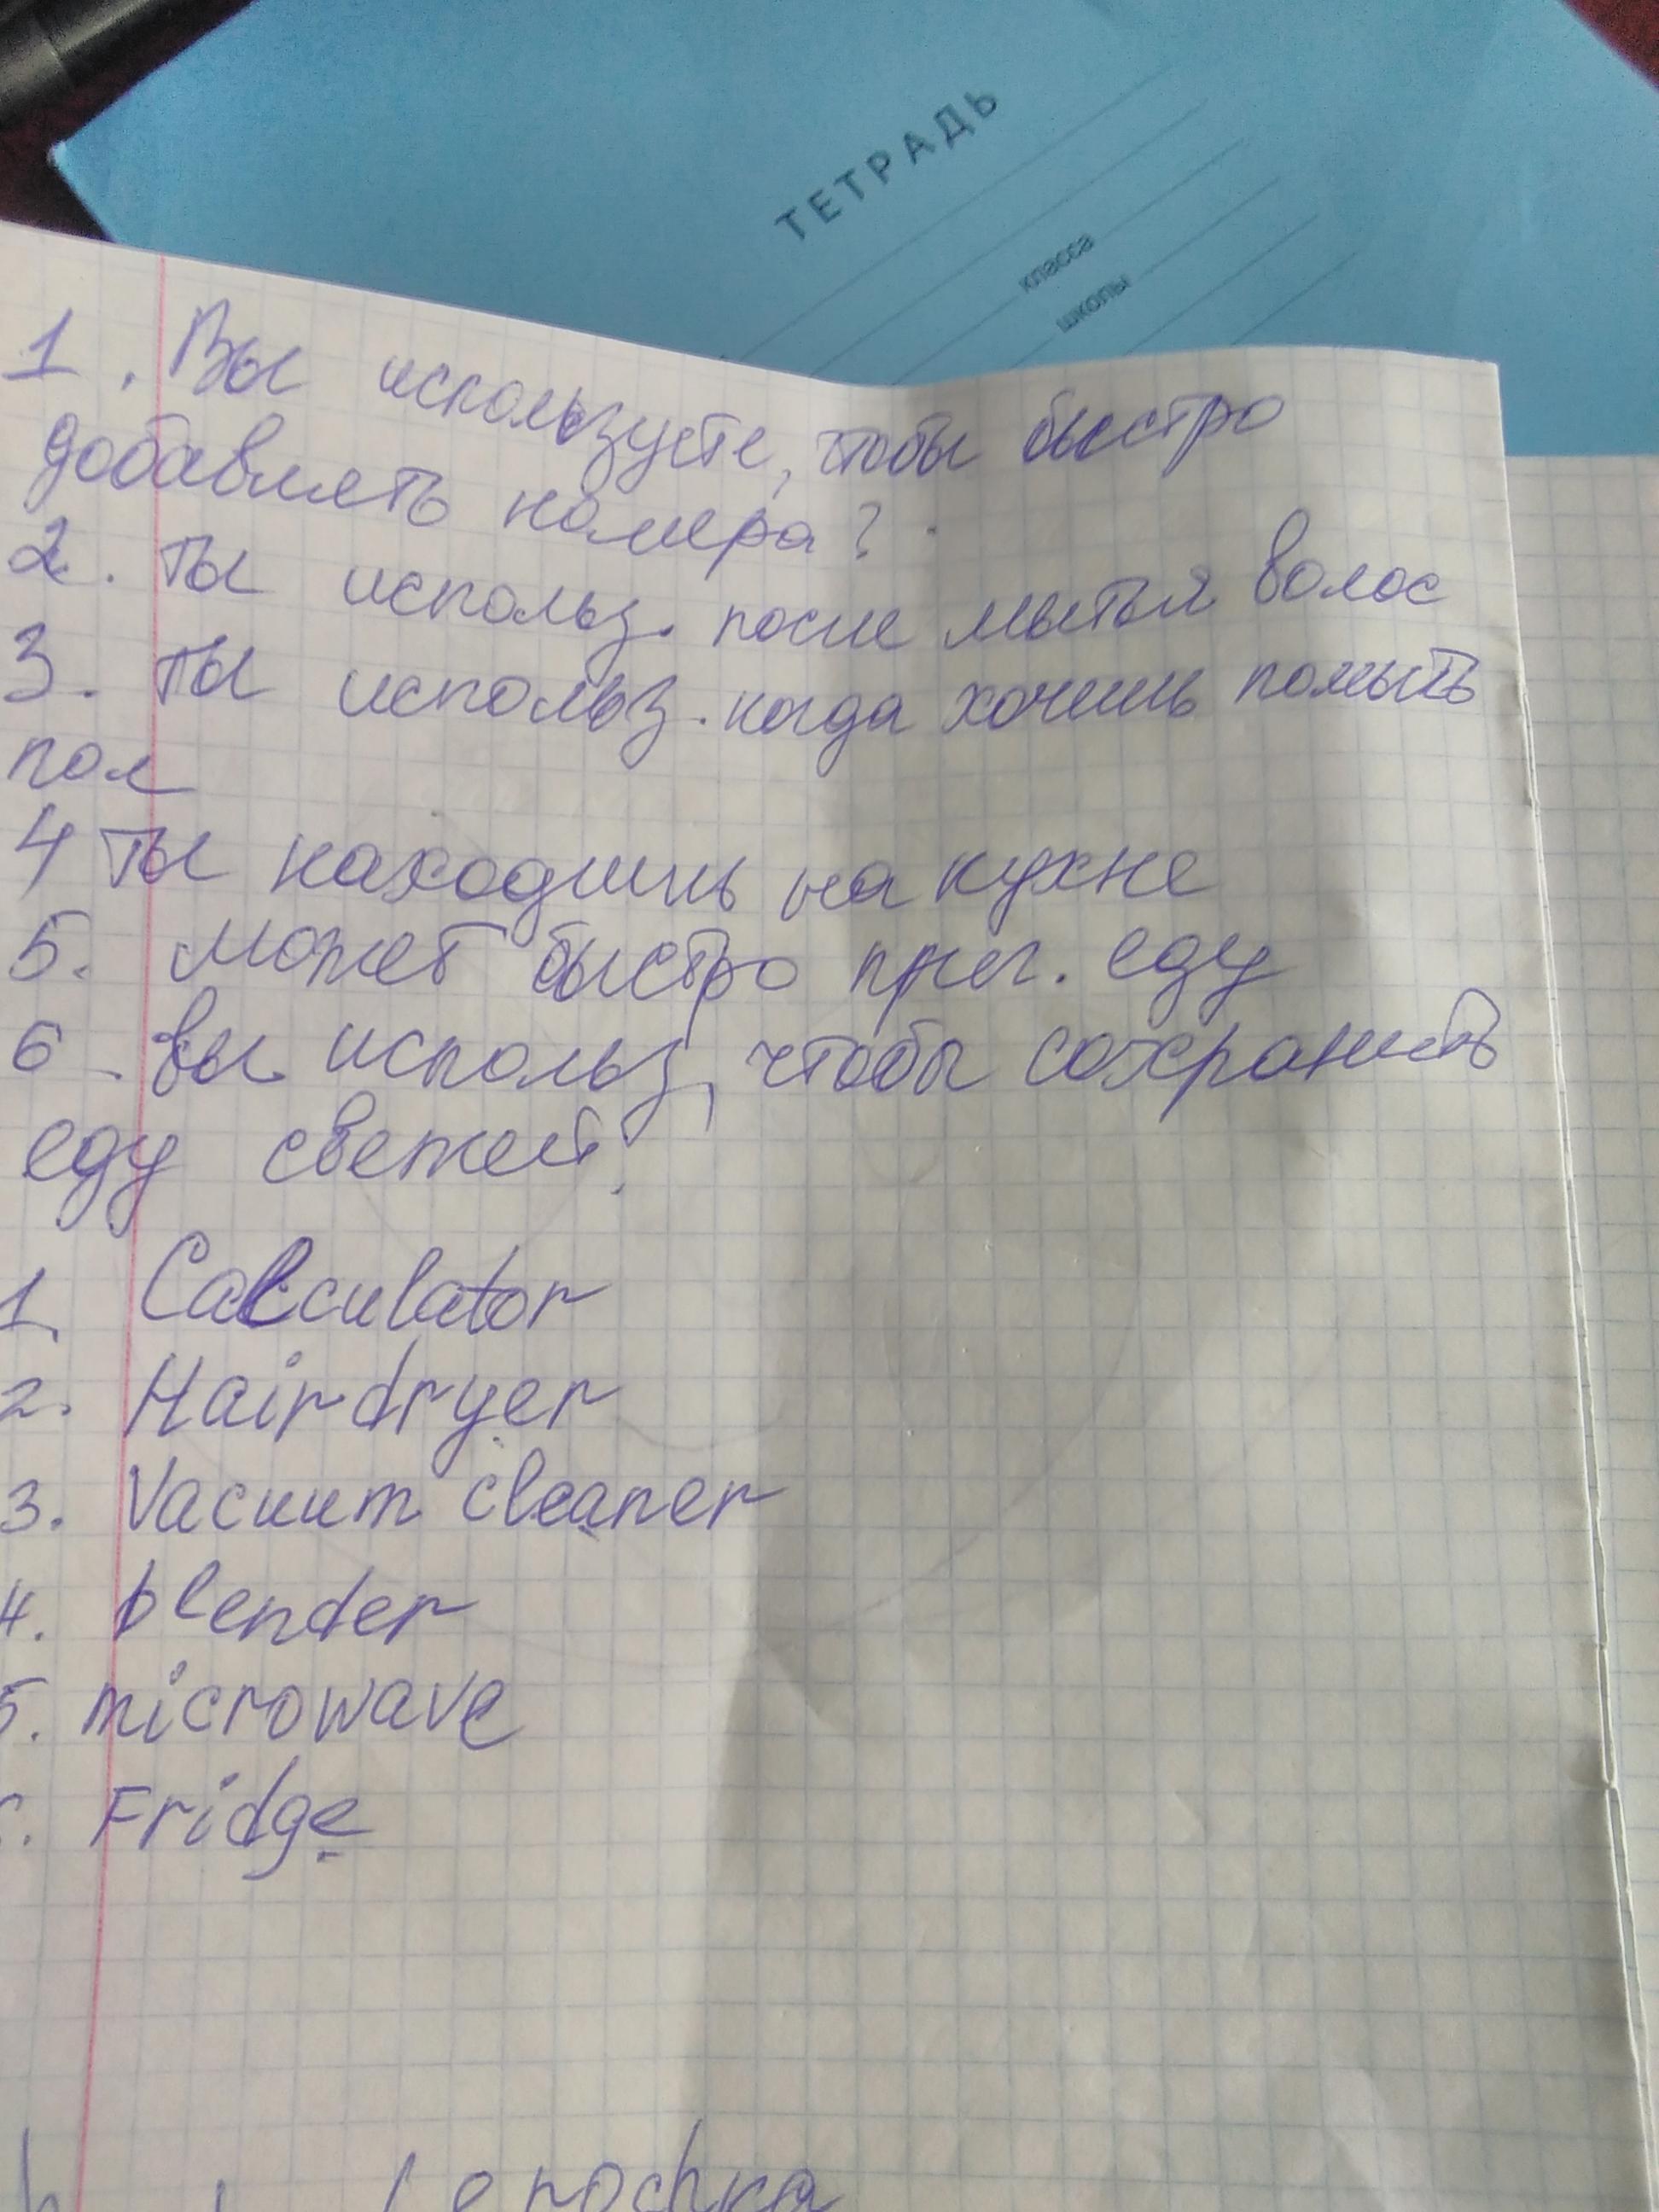 ТЕТРАДЬ
класса
школы
1. Вы используете, чтобы быстро
добавлять номера?
2. Ты использ. после мытья волос
3. Ты использ. когда хочешь помыть
пол
4 Ты находишь на кухне
5. Может быстро приг. еду
6. вы использ, чтобы сохранить
еду свежей?
1. Calculator
2. Hairdryer
3. Vacuum cleaner
4. blender
5. microwave
Fridge